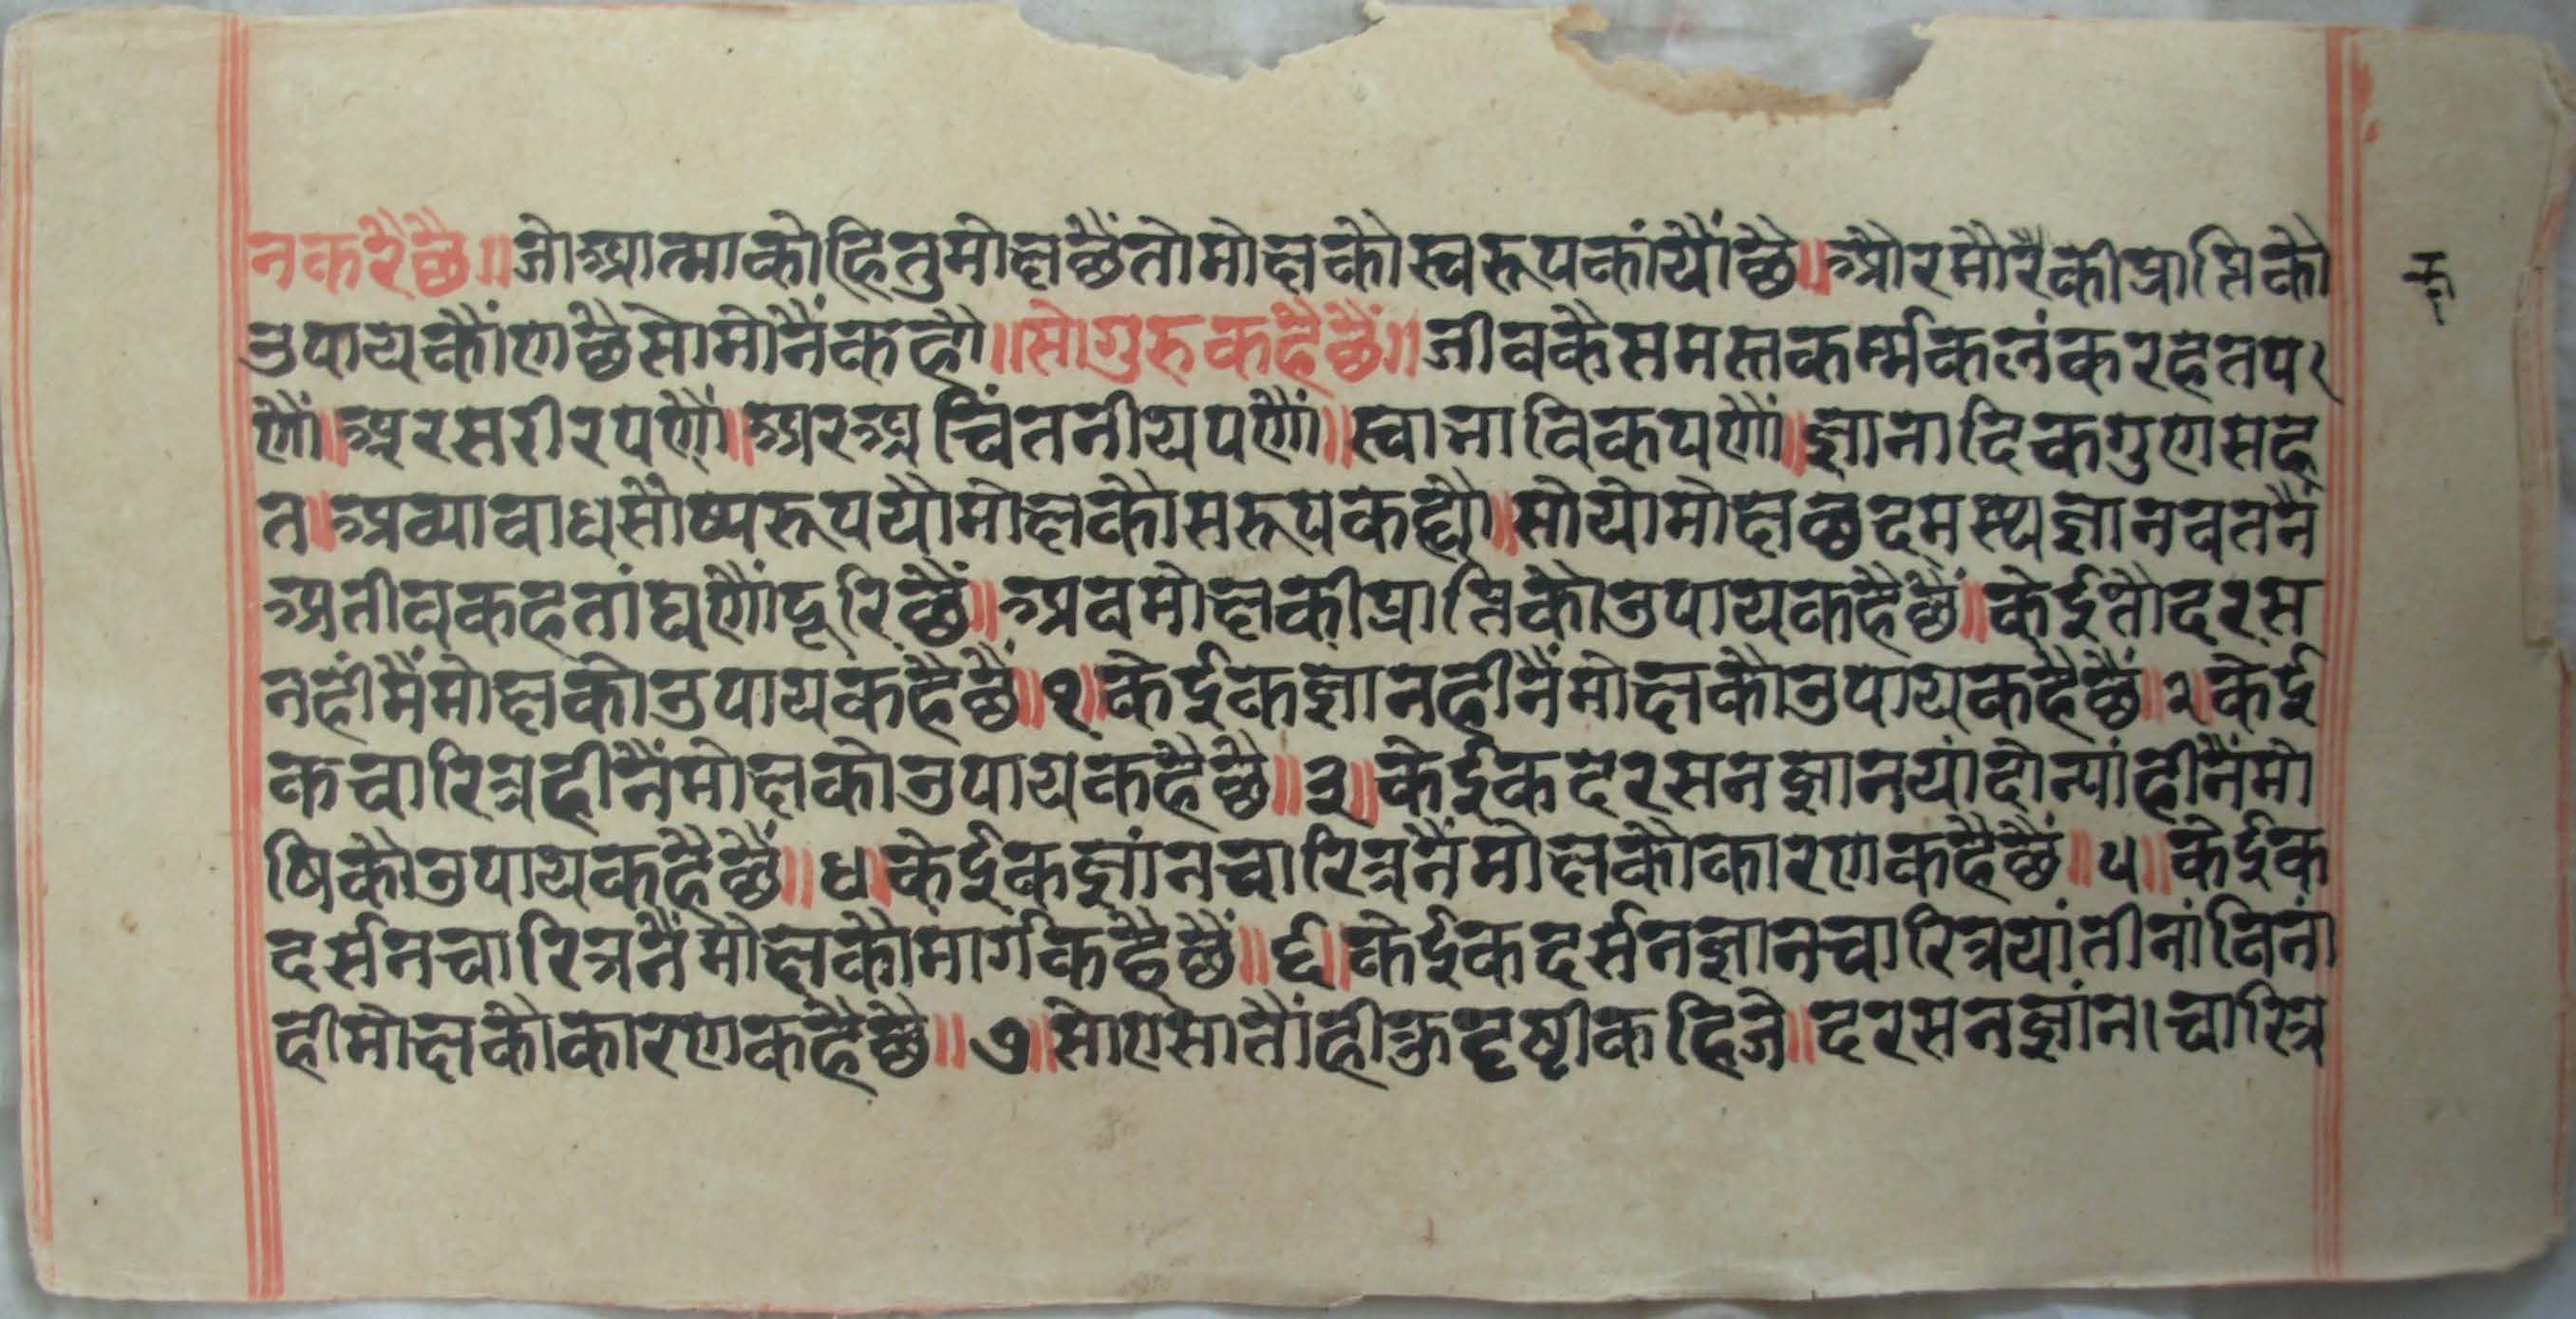 नकरैछै॥जोआत्माकोहितुमोक्षछैंतोमोक्षकौस्वरूपकांयौंछै॥औरमौरैकीप्राप्तिकौ
उपायकौंणछैसोमोनैंकहौ॥सोगुरुकहैछैं॥जीवकैसमस्तकर्म्मकलंकरहतप
णौं॥अरसरीरपणौं॥अरअचिंतनीयपणौं॥स्वाभाविकपणौं॥ज्ञानादिकगुणसह
त॥अव्यावाधसौष्यरूपयौमोक्षकौसरूपकह्यौ॥सोयोमोक्षछदमस्थज्ञानवतनैं
अतीवकहतांघणौंदूरिछैं॥अवमोक्षकीप्राप्तिकौउपायकहैछैं॥केईतौदरस
नहींमैंमोक्षकोउपायकहैछैं॥१॥केईकज्ञानहीनैंमोक्षकौउपायकहैछैं॥२॥केई
कचारित्रहीनैंमोक्षकोउपायकहैछै॥३॥केईकदरसनज्ञानयांदोन्यांहीनैंमो
षिकौउपायकहैछैं॥४॥केईकज्ञांनचारित्रनैंमोक्षकौकारणकहैछैं॥५॥केईक
दर्सनचारित्रनैंमोक्षकौमार्गकहैछैं॥६॥केईकदर्सनज्ञानचारित्रयांतीनांविनां
हीमोक्षकौकारणकहैछै॥७॥सोएसातौंही दृष्टीकहिजे॥दरसनज्ञांन।चारित्र